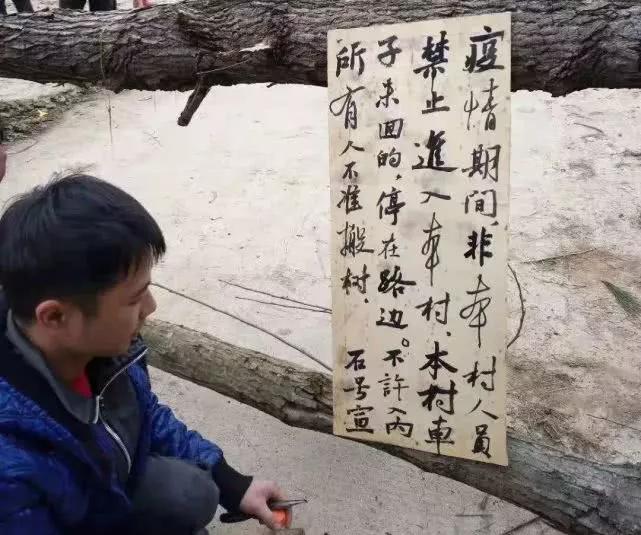 疫情期间，非本村人员
禁止進入本村、本村車
子来回的，停在路边。不許入内
所有人不准搬树、石号宣